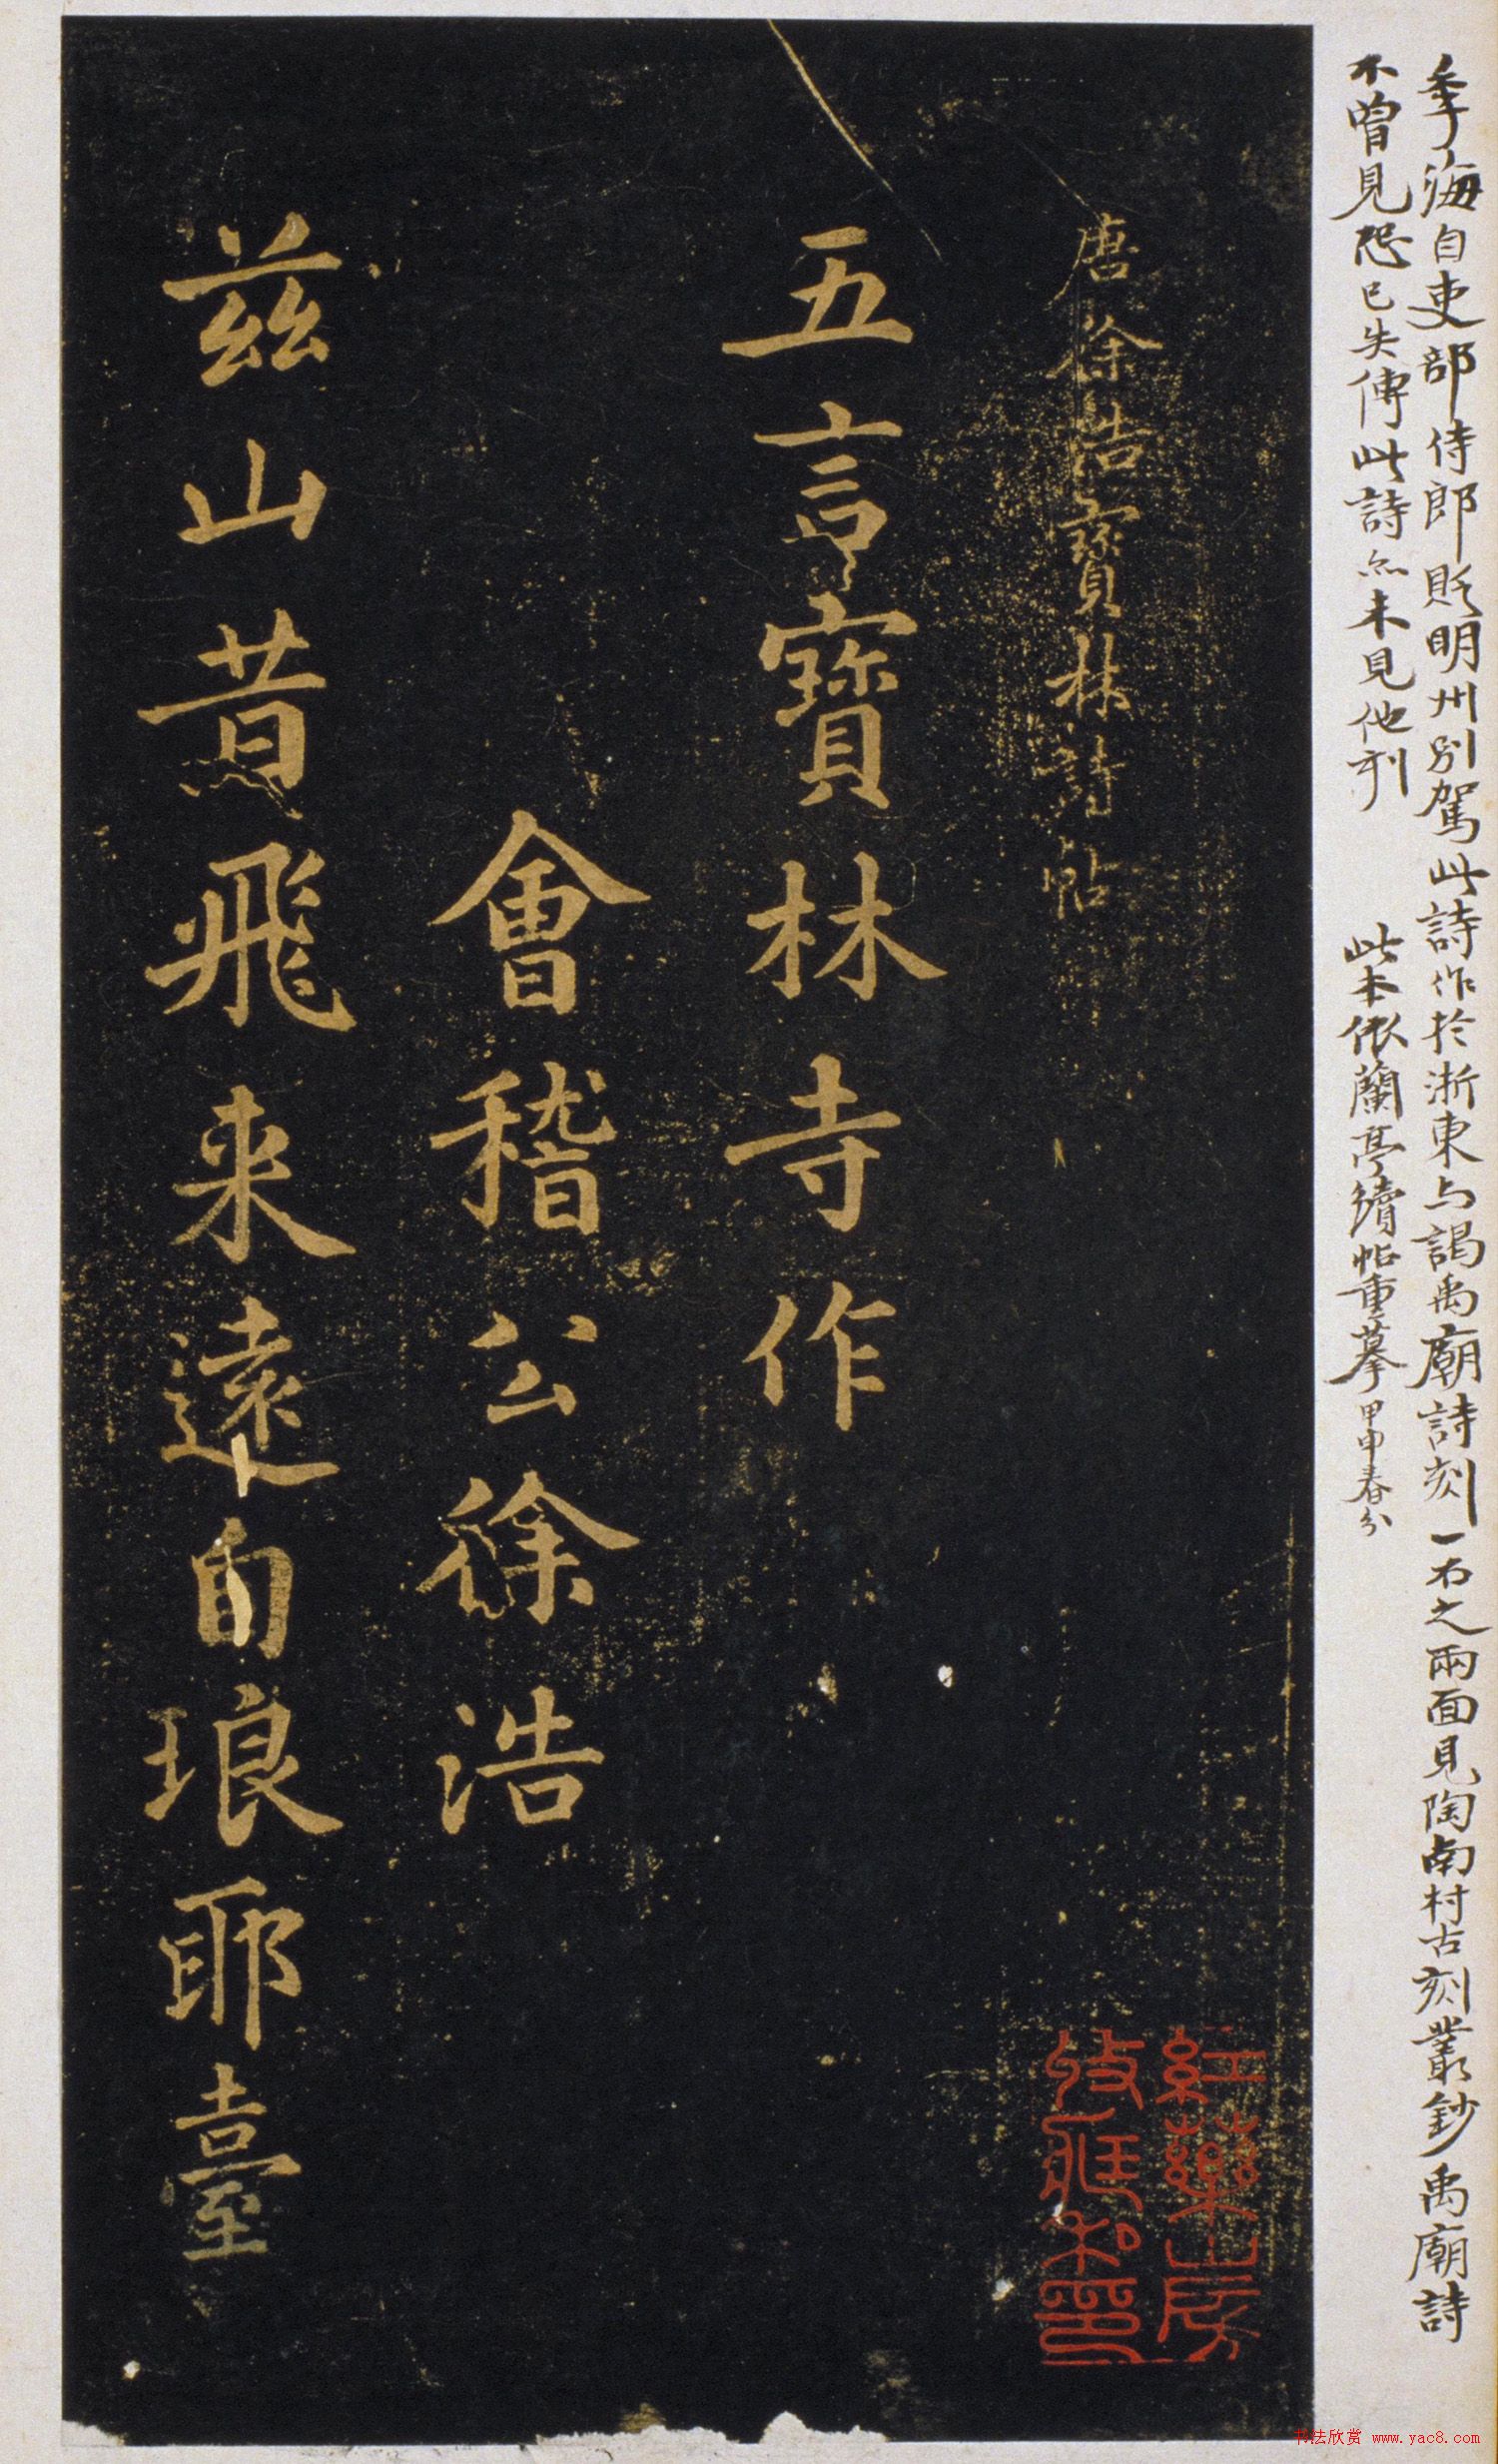 季海自吏部侍郎貶明州別駕此詩作於浙東与謁禹廟詩刻一石之兩面見陶南村古刻叢鈔禹廟詩
不曾見恐已失傳此詩亦未見他刻　此本依蘭亭續帖重摹甲申春分
唐徐浩寶林詩帖
五言寶林寺作
會稽公徐浩
茲山昔飛来遠自琅耶臺
紅藥山房
收藏私印
书法欣赏 www.yac8.com